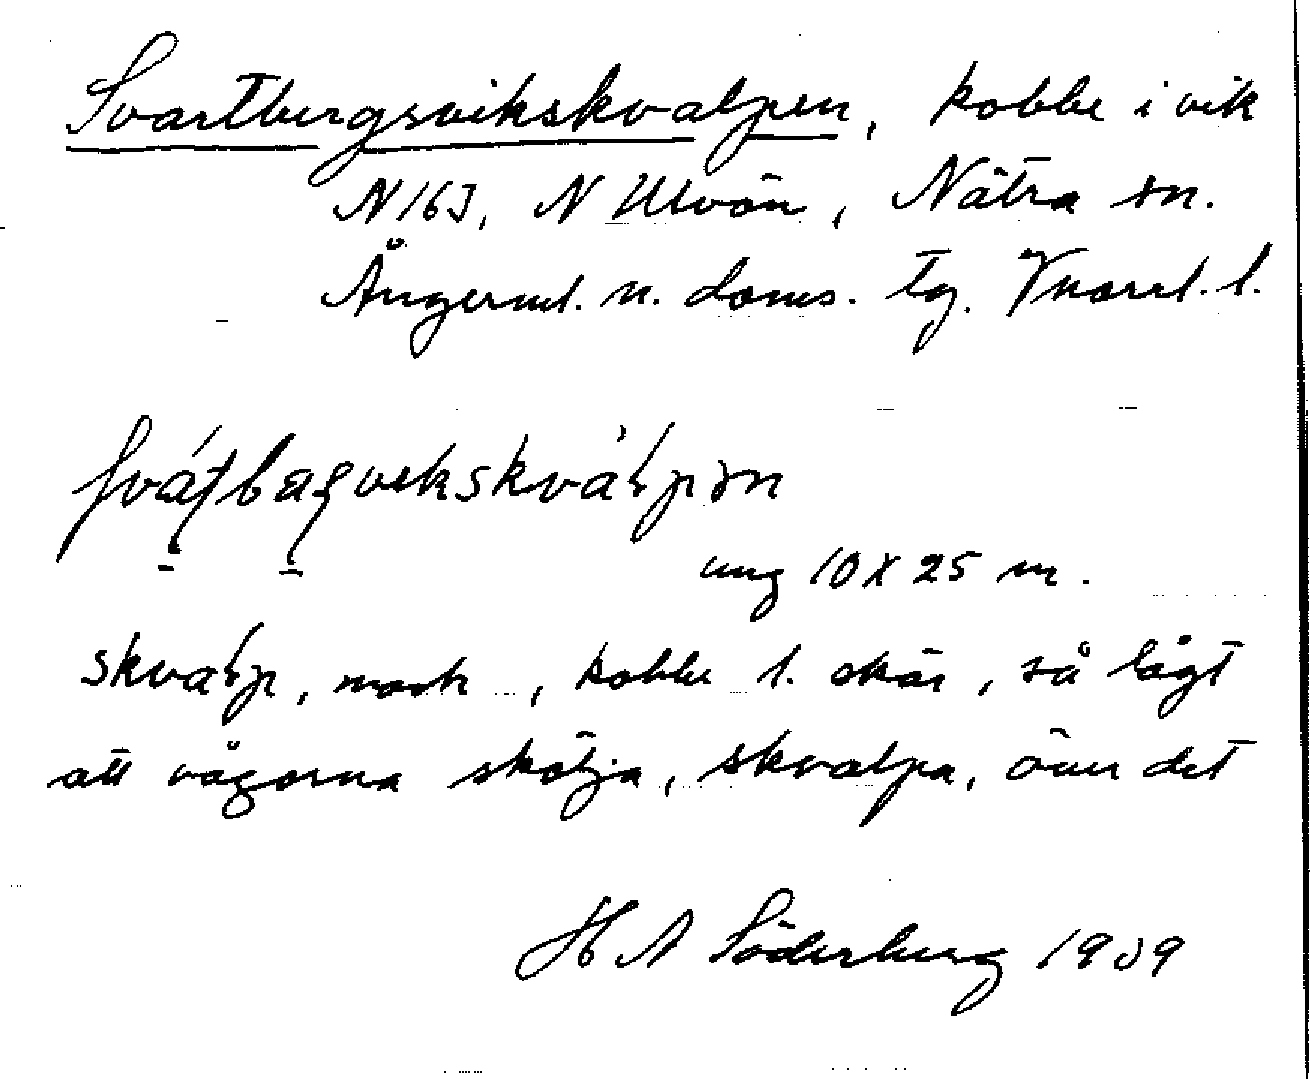 Svartbergsvikskvalpen, kobbe i vik
N 163, N Ulvön, Nätra sn.
Ångerml. n. doms. tg. Vnorrl. l.
ung 10 x 25 m.
skvalp, mask, kobbe l. skär, så lågt
att vågorna skölja, skvalpa, över det
H A Söderberg 1909